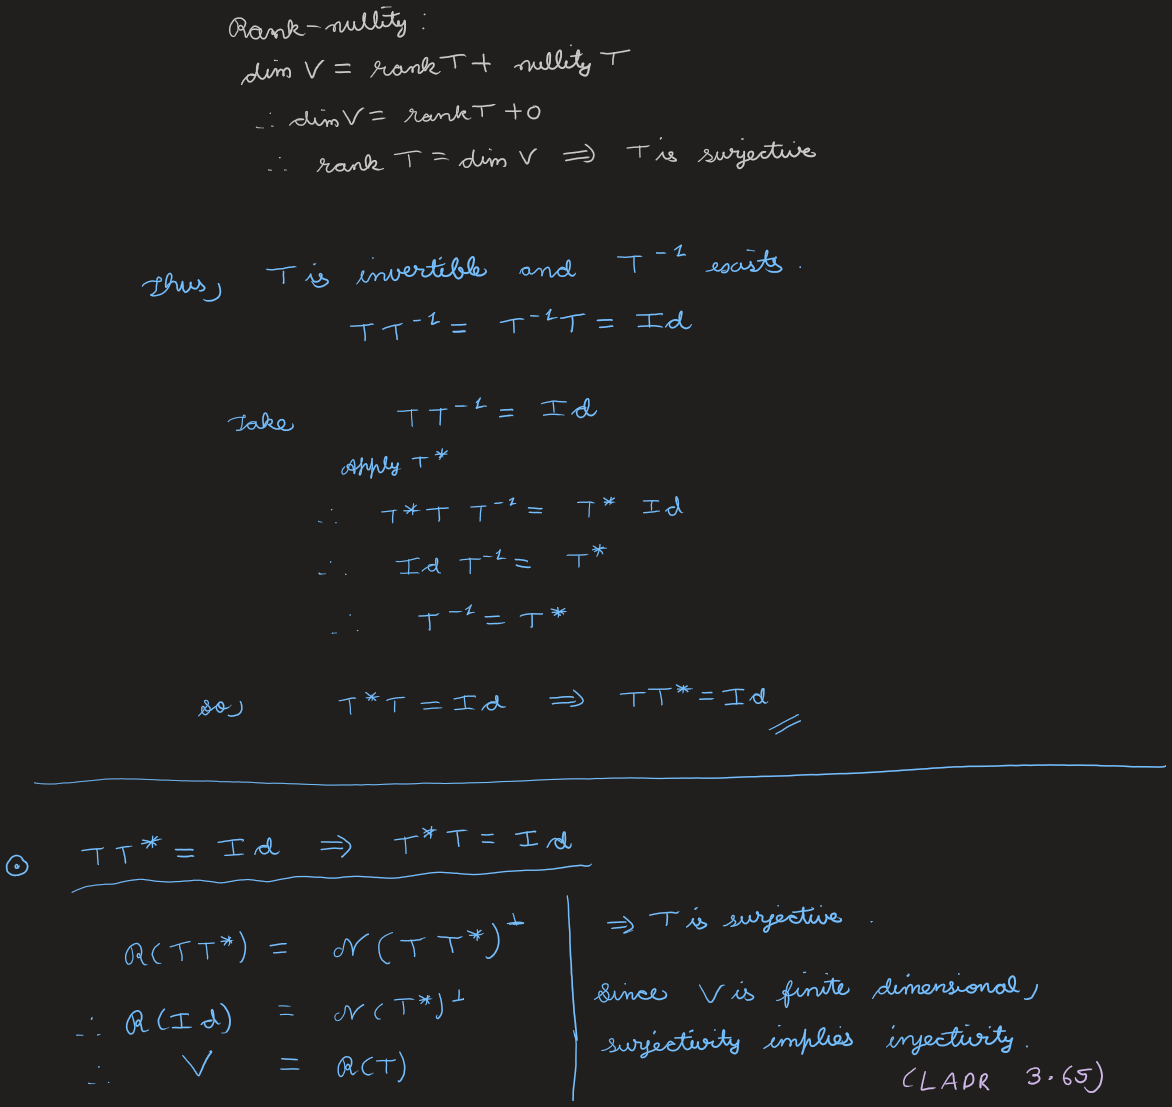 Rank-nullity:
dim V = rank T + nullity T
∴ dim V = rank T + 0
∴ rank T = dim V ⇒ T is surjective
Thus, T is invertible and T⁻¹ exists.
T T⁻¹ = T⁻¹T = Id
Take T T⁻¹ = Id
Apply T*
∴ T*T T⁻¹ = T* Id
∴ Id T⁻¹ = T*
∴ T⁻¹ = T*
so, T*T = Id ⇒ TT* = Id
⊙ TT* = Id ⇒ T*T = Id
R(TT*) = N(TT*)^⊥
∴ R(Id) = N(T*)^⊥
∴ V = R(T)
⇒ T is surjective.
Since V is finite dimensional,
surjectivity implies injectivity.
(LADR 3.65)